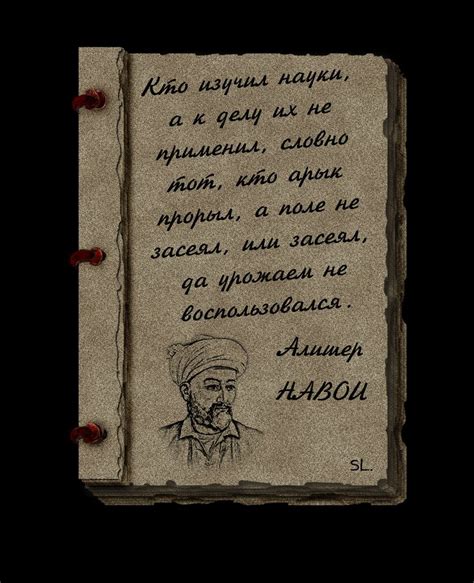 Кто изучил науки,
а к делу их не
применил, словно
тот, кто арык
прорыл, а поле не
засеял, или засеял,
да урожаем не
воспользовался.
Алишер
НАВОИ
SL.